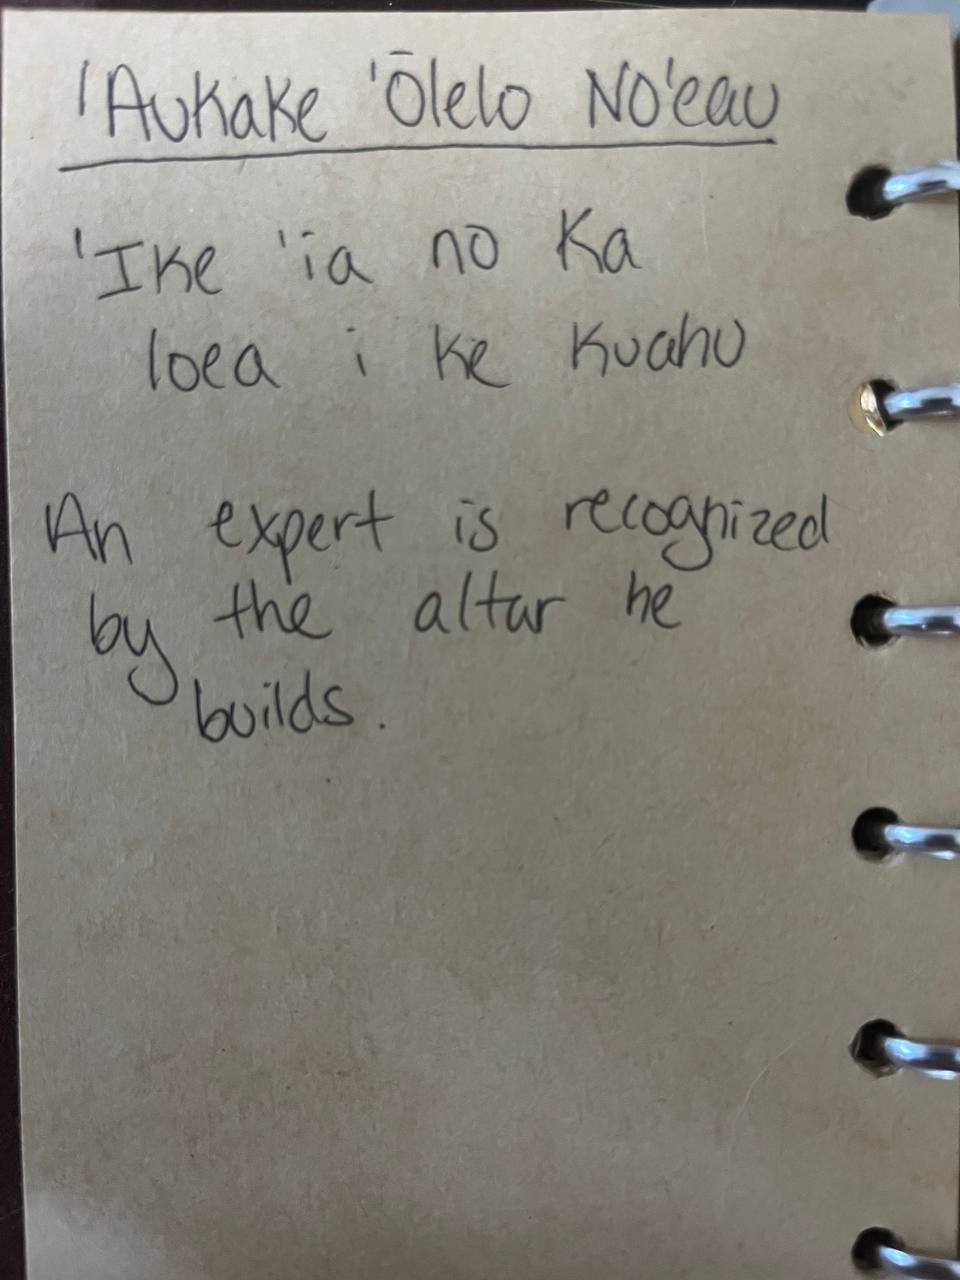 'Aukake 'Ōlelo No'eau
'Ike 'ia no ka
loea i ke kuahu
An expert is recognized
by the altar he
builds.